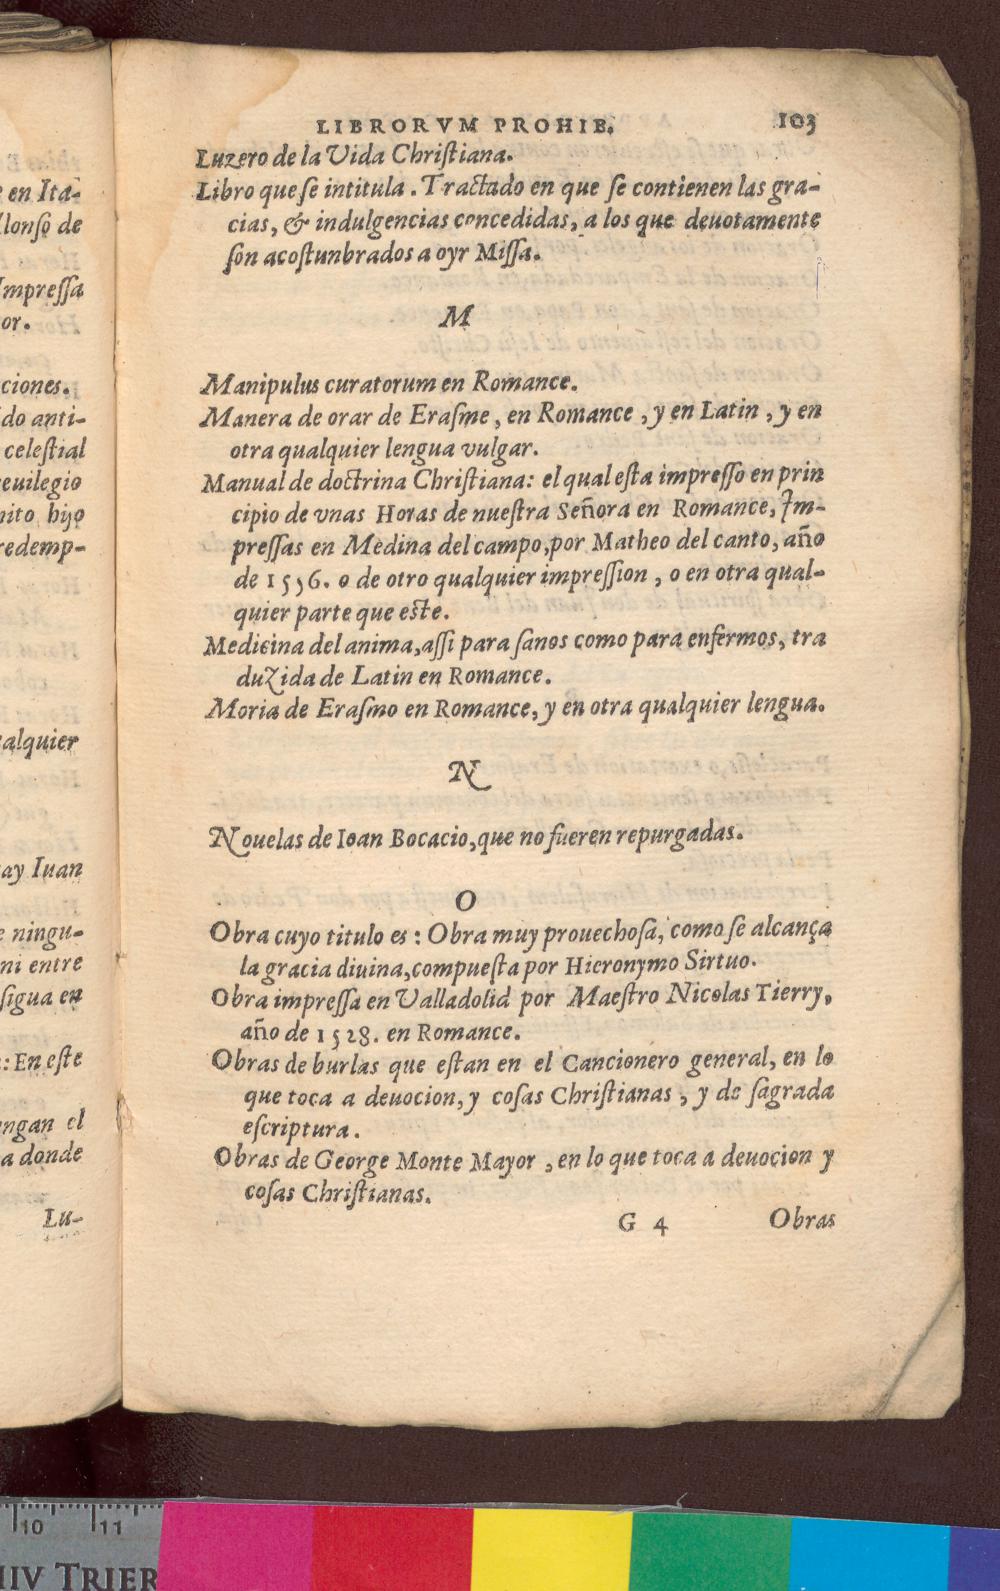 LIBRORVM PROHIB. 103
Luzero de la Vida Chriſtiana.
Libro que ſe intitula. Tractado en que ſe contienen las gra-
cias, & indulgencias concedidas, a los que deuotamente
ſon acoſtunbrados a oyr Miſſa.
M
Manipulus curatorum en Romance.
Manera de orar de Eraſme, en Romance, y en Latin, y en
otra qualquier lengua vulgar.
Manual de doctrina Chriſtiana: el qual eſta impreſſo en prin
cipio de vnas Horas de nueſtra Señora en Romance, Im-
preſſas en Medina del campo, por Matheo del canto, año
de 1556. o de otro qualquier impreſſion, o en otra qual-
quier parte que eſte.
Medicina del anima, aſſi para ſanos como para enfermos, tra
duzida de Latin en Romance.
Moria de Eraſmo en Romance, y en otra qualquier lengua.
N
Nouelas de Ioan Bocacio, que no fueren repurgadas.
O
Obra cuyo titulo es: Obra muy prouechoſa, como ſe alcança
la gracia diuina, compueſta por Hieronymo Sirtuo.
Obra impreſſa en Valladolid por Maeſtro Nicolas Tierry,
año de 1528. en Romance.
Obras de burlas que eſtan en el Cancionero general, en lo
que toca a deuocion, y coſas Chriſtianas, y de ſagrada
eſcriptura.
Obras de George Monte Mayor, en lo que toca a deuocion y
coſas Chriſtianas.
G 4 Obras
e en Ita-
lonſo de
Impreſſa
or.
ciones.
do anti-
celeſtial
reuilegio
nito hijo
redemp-
ualquier
ay Iuan
e ningu-
ni entre
ſigua en
: En eſte
ngan el
a donde
Lu-
10 11
HIV TRIER